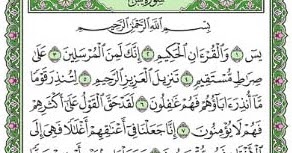 سورة يس
بِسْمِ اللَّهِ الرَّحْمَٰنِ الرَّحِيمِ
يسٓ ١ وَالْقُرْءَانِ الْحَكِيمِ ٢ إِنَّكَ لَمِنَ الْمُرْسَلِينَ ٣ عَلَىٰ
صِرَاطٍ مُّسْتَقِيمٍ ٤ تَنزِيلَ الْعَزِيزِ الرَّحِيمِ ٥ لِتُنذِرَ قَوْمًا
مَّا أُنذِرَ ءَابَاؤُهُمْ فَهُمْ غَٰفِلُونَ ٦ لَقَدْ حَقَّ الْقَوْلُ عَلَىٰ أَكْثَرِهِمْ
فَهُمْ لَا يُؤْمِنُونَ ٧ إِنَّا جَعَلْنَا فِي أَعْنَٰقِهِمْ أَغْلَٰلًا فَهِيَ إِلَى